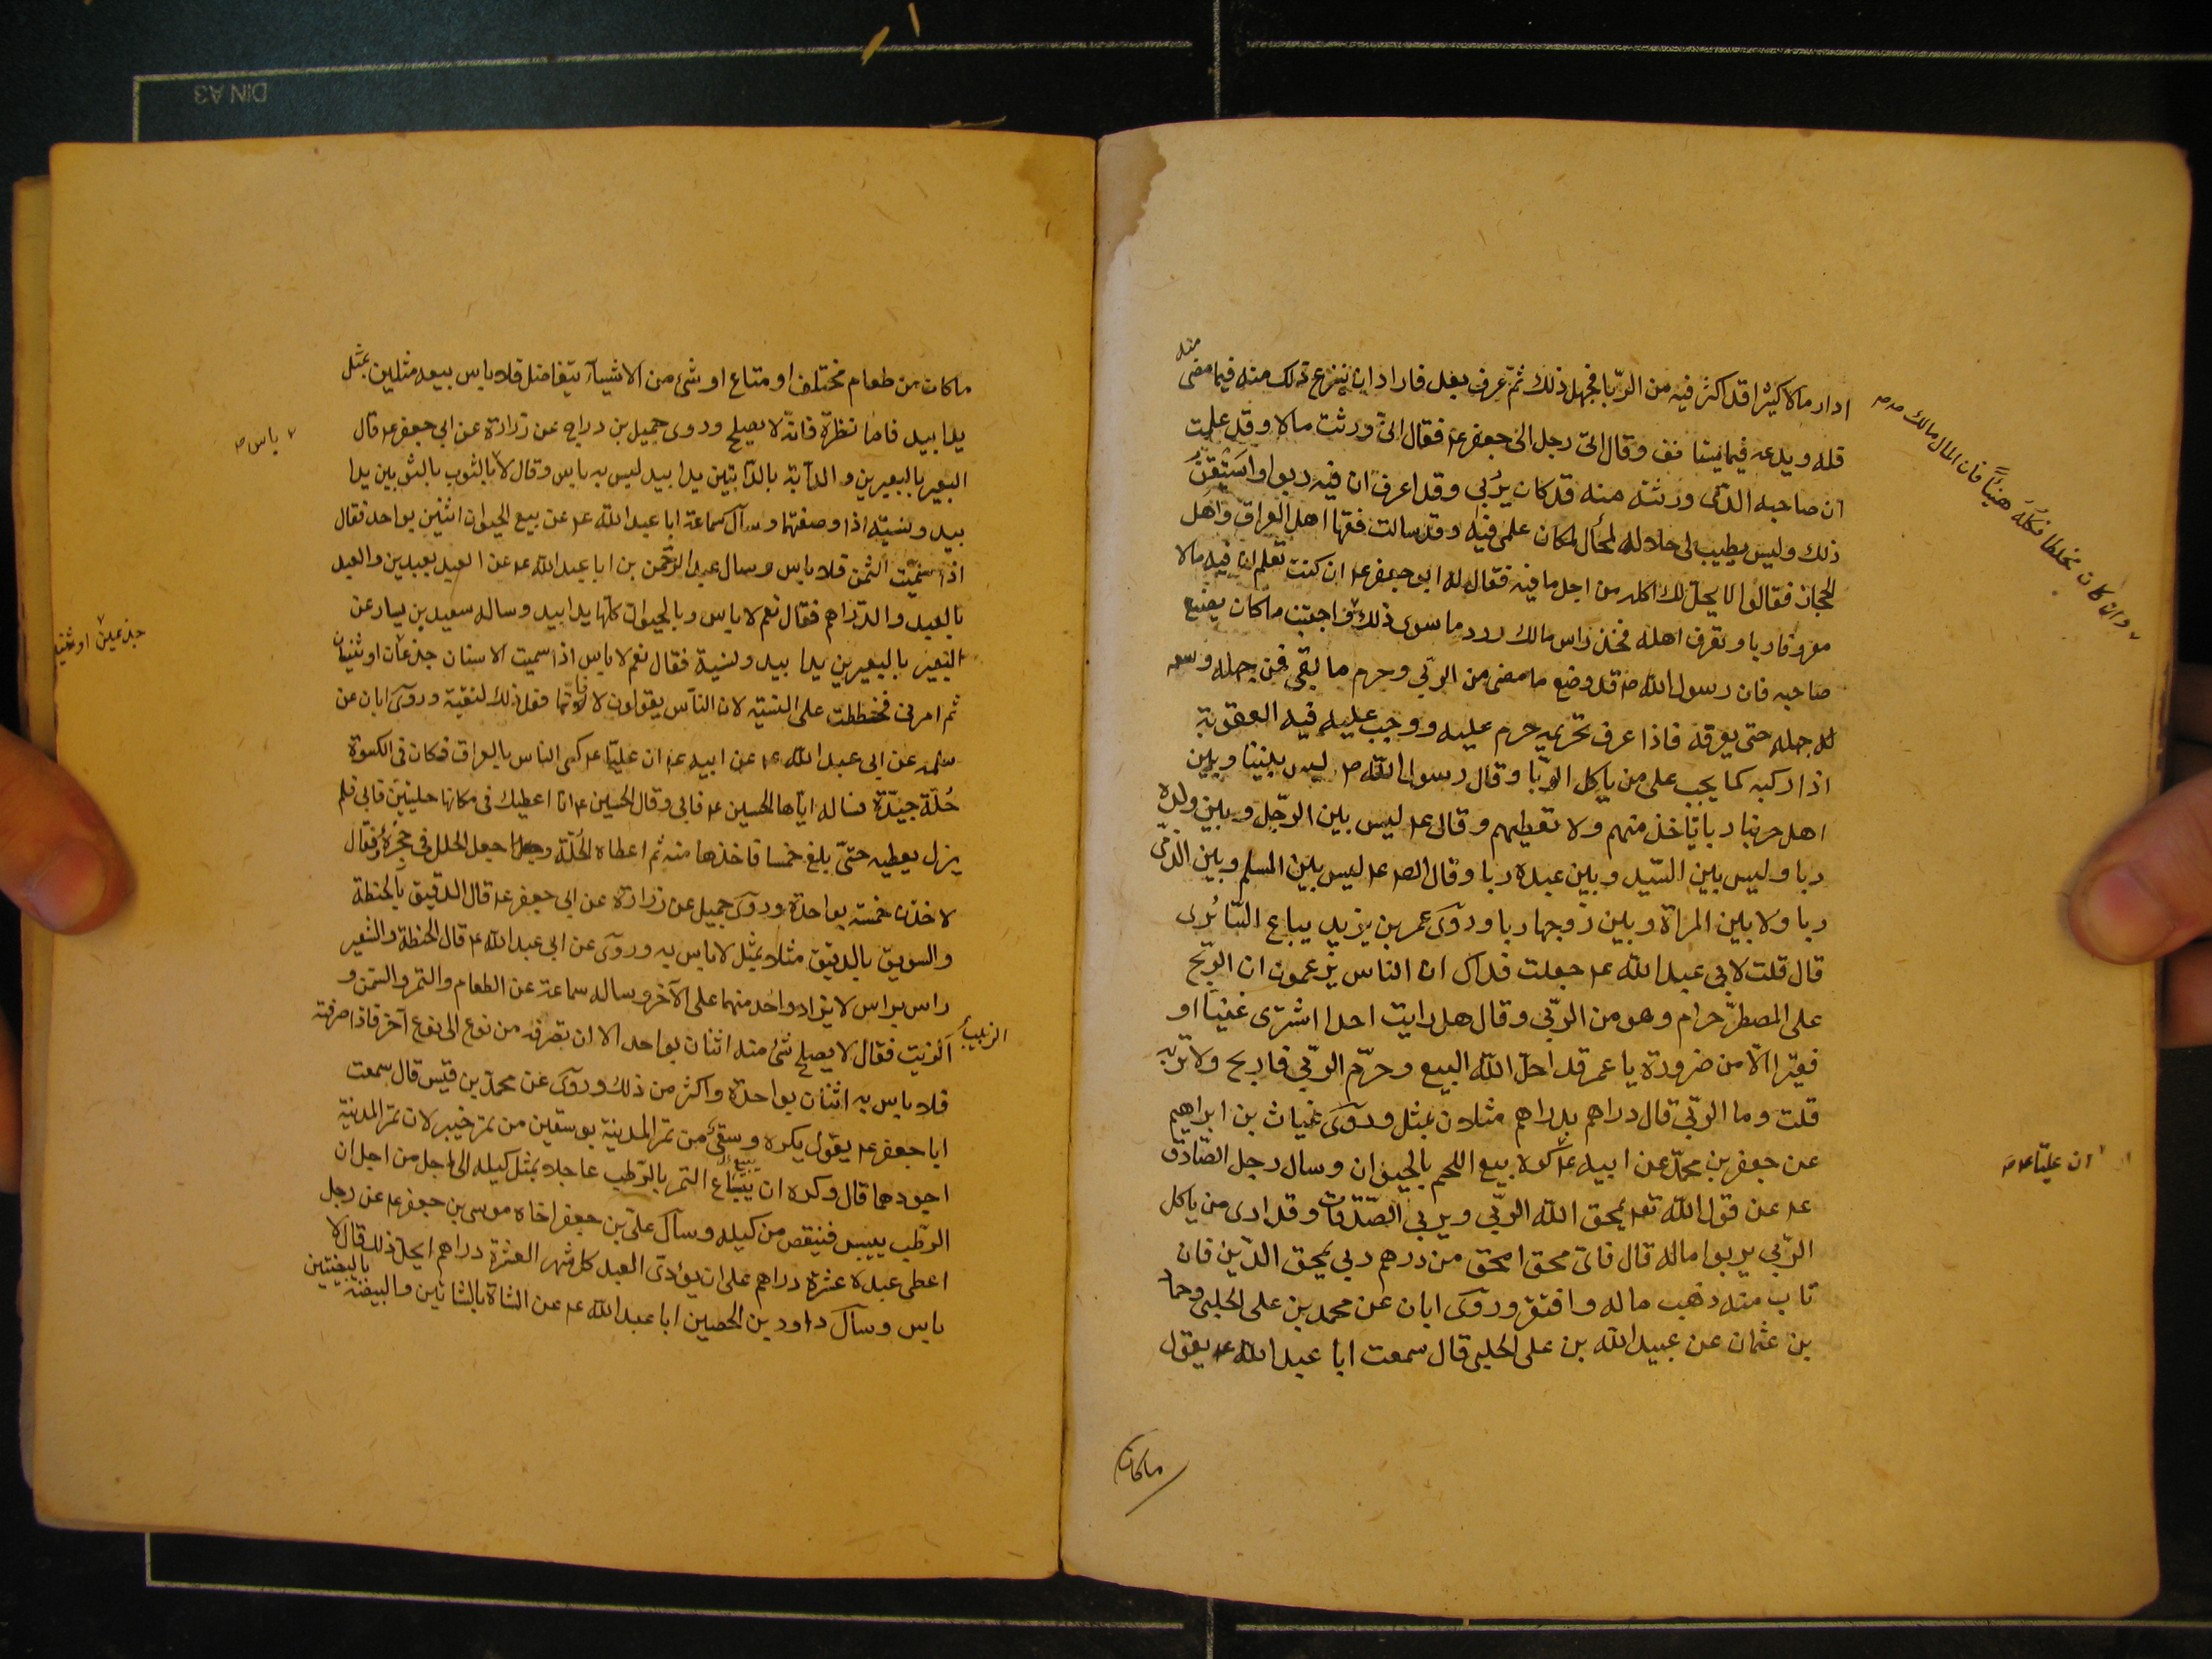 ادار مالا كثيرا قد اكثر فيه من الربا فجهل ذلك ثم عرف بعد فاراد ان ينزع ذلك منه فيما مضى
منه
فله ويدعه فيما يستانف وقال اتى رجل الى جعفر ع فقال انى ورثت مالا وقد علمت
ان صاحبه الذى ورثته منه قد كان يربى وقد اعرف ان فيه ربوا واستيقن
ذلك وليس يطيب لى حلاله لحال مكان علمى فيه وقد سالت فقها اهل العراق واهل
الحجاز فقالوا لا يحل لك اكله من اجل ما فيه فقال له ابى جعفر ع ان كنت تعلم ان فيه مالا
معروفا ربا وتعرف اهله فخذ راس مالك ورد ما سوى ذلك فاجتنب ما كان يصنع
صاحبه فان رسول الله ص قد وضع ما مضى من الربى وحرم ما بقى فمن جهله وسعه
له جهله حتى يعرفه فاذا عرف تحريمه حرم عليه ووجب عليه فيه العقوبة
اذا ركبه كما يجب على من ياكل الربا وقال رسول الله ص ليس بيننا وبين
اهل حربنا ربا ناخذ منهم ولا نعطيهم وقال ع ليس بين الرجل وبين ولده
ربا وليس بين السيد وبين عبده ربا وقال الص ع ليس بين المسلم وبين الذمى
ربا ولا بين المراة وبين زوجها ربا وروى عمر بن يزيد بياع السابرى
قال قلت لابى عبد الله ع جعلت فداك ان الناس يزعمون ان الربح
على المضطر حرام وهو من الربى وقال هل رايت احدا اشترى غنيا او
فقيرا الا من ضرورة يا عمر قد احل الله البيع وحرم الربى فاربح ولا تربه
قلت وما الربى قال دراهم بدراهم مثلان بمثل وروى غياث بن ابراهيم
عن جعفر بن محمد عن ابيه ع كره بيع اللحم بالحيوان وسال رجل الصادق
ع عن قول الله تع يمحق الله الربى ويربى الصدقات وقد ارى من ياكل
الربى يربوا ماله قال فاى محق امحق من درهم ربى يمحق الدين فان
تاب منه ذهب ماله وافتقر وروى ابان عن محمد بن على الحلبى وحماد
بن عثمان عن عبيد الله بن على الحلبى قال سمعت ابا عبد الله ع يقول
وان كان مختلطا فكله هنيئا فان المال مالك
ان عليا ع
ماكان
ماكان من طعام مختلف او متاع او شئ من الاشياء يتفاضل فلا باس ببيعه مثلين بمثل
يدا بيد فاما نظرة فانه لا يصلح وروى جميل بن دراج عن زرارة عن ابى جعفر ع قال
البعير بالبعيرين والدابة بالدابتين يدا بيد ليس به باس وقال لا بالثوب بالثوبين يدا
بيد ونسية اذا وصفتهما وسال سماعة ابا عبد الله ع عن بيع الحيوان اثنين بواحد فقال
اذا سميت الثمن فلا باس وسال عبد الرحمن بن ابا عبد الله ع عن العبد بعبدين والعبد
بالعبد والدراهم فقال نعم لا باس وبالحيوان كلها يدا بيد وساله سعيد بن يسار عن
البعير بالبعيرين يدا بيد ونسية فقال نعم لا باس اذا سميت الاسنان جذعان او ثنيان
ثم امرنى فخططت على النسية لان الناس يقولون لا فانما فعل ذلك لتقية وروى ابان عن
سلمه عن ابى عبد الله ع عن ابيه ع ان عليا ع كسى الناس بالعراق فكان فى الكسوة
حلة جيدة فساله اياها الحسين ع فابى وقال الحسين ع انا اعطيك فى مكانها حلتين فابى فلم
يزل يعطيه حتى بلغ خمسا فاخذها منه ثم اعطاه الحلة وجعل الحلل فى حجره وقال
لاخذن خمسة بواحدة وروى جميل عن زرارة عن ابى جعفر ع قال الدقيق بالحنطة
والسويق بالدقيق مثلا بمثل لا باس به وروى عن ابى عبد الله ع قال الحنطة والشعير
راس براس لا يزاد واحد منهما على الآخر وساله سماعة عن الطعام والتمر والسمن و
الزبيب
الزيت فقال لا يصلح شئ منه اثنان بواحد الا ان تصرفه من نوع الى نوع آخر فاذا صرفته
فلا باس به اثنان بواحدة واكثر من ذلك وروى عن محمد بن قيس قال سمعت
ابا جعفر ع يقول يكره وسقئ من تمر المدينة بوسقين من تمر خيبر لان تمر المدينة
اجودهما قال وكره ان يباع التمر بالرطب عاجلا بمثل كيله الى اجل من اجل ان
الرطب ييبس فينقص من كيله وسال على بن جعفر اخاه موسى بن جعفر ع عن رجل
اعطى عبده عشرة دراهم على ان يؤدى العبد كل شهر العشرة دراهم ايحل ذلك قال لا
باس وسال داود بن الحصين ابا عبد الله ع عن الشاة بالشاتين والبيضة
بالبيضتين
باس
جذعين او ثنيين